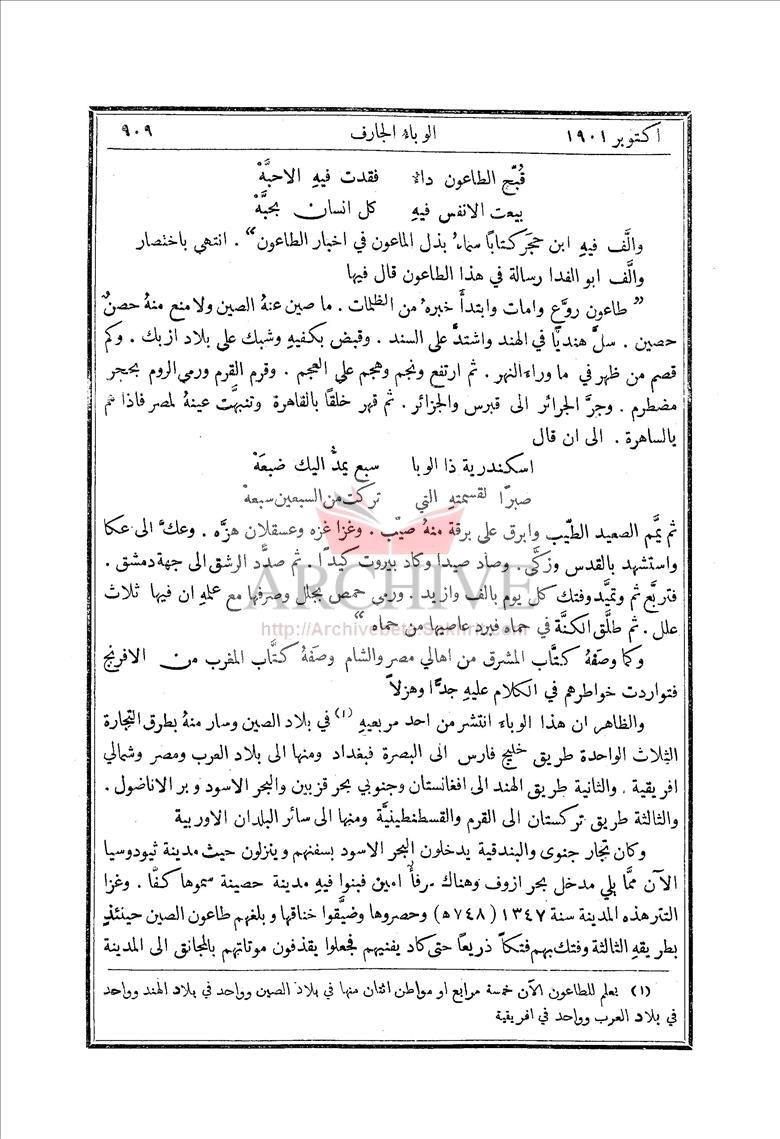 اكتوبر ١٩٠١ الوباء الجارف ٩٠٩
قُبّح الطاعون داء فقدت فيهِ الاحبَّهْ
بيعت الانفس فيهِ كل انسان بحبَّهْ
والَّف فيهِ ابن حجَر كتابًا سماهُ بذل الماعون في اخبار الطاعون“ . انتهي باختصار
والَّف ابو الفدا رسالة في هذا الطاعون قال فيها
” طاعون روَّع وامات وابتدأ خبرهُ من الظلمات . ما صين عنهُ الصين ولا منع منهُ حصنٌ
حصين . سلَّ هنديًّا في الهند واشتدَّ على السند . وقبض بكفيهِ وشبك على بلاد ازبك . وكم
قصم من ظهر في ما وراء النهر . ثم ارتفع ونجم وهجم على العجم . وقرم القرم ورمى الروم بحجر
مضطرم . وجرَّ الجرائر الى قبرس والجزائر . ثم قهر خلقًا بالقاهرة وتنبهت عينهُ لمصر فاذا هم
بالساهرة . الى ان قال
اسكندرية ذا الوبا سبع يمدُّ اليك ضبعَهْ
صبرًا لقسمتهِ التي تركت من السبعين سبعهْ
ثم يمَّم الصعيد الطيّب وابرق على برقة منهُ صيّب . وغزا غزه وعسقلان هزَّه . وعكَّ الى عكا
واستشهد بالقدس وزكَّى . وصاد صيدا وكاد بيروت كيدًا . ثم صدَّد الرشق الى جهة دمشق .
فتربَّع ثم وتميَّد وفتك كل يوم بالف وازيد . ورمى حمص بجلل وصرفها مع علمهِ ان فيها ثلاث
علل . ثم طلَّق الكنَّة في حماه فبرد عاصيها من حماه “
وكما وصفهُ كتَّاب المشرق من اهالي مصر والشام وصفهُ كتَّاب المغرب من الافرنج
فتواردت خواطرهم في الكلام عليهِ جدًّا وهزلاً
والظاهر ان هذا الوباء انتشر من احد مربعيهِ (١) في بلاد الصين وسار منهُ بطرق التجارة
الثلاث الواحدة طريق خليج فارس الى البصرة فبغداد ومنها الى بلاد العرب ومصر وشمالي
افريقية . والثانية طريق الهند الى افغانستان وجنوبي بحر قزبين والبحر الاسود وبر الاناضول .
والثالثة طريق تركستان الى القرم والقسطنطينيَّة ومنها الى سائر البلدان الاوربية
وكان تجار جنوى والبندقية يدخلون البحر الاسود بسفنهم وينزلون حيث مدينة ثيودوسيا
الآن ممَّا يلي مدخل بحر ازوف وهناك مرفأ امين فبنوا فيهِ مدينة حصينة سموها كفَّا . وغزا
التتر هذه المدينة سنة ١٣٤٧ (٧٤٨ ﻫ) وحصروها وضيَّقوا خناقها وبلغهم طاعون الصين حينئذٍ
بطريقهِ الثالثة وفتك بهم فتكاً ذريعاً حتى كاد يفنيهم فجعلوا يقذفون موتاتهم بالمجانق الى المدينة
(١) يعلم للطاعون الآن خمسة مرابع او مواطن اثنان منها في بلاد الصين وواحد في بلاد الهند وواحد
في بلاد العرب وواحد في افريقية
ARCHIVE